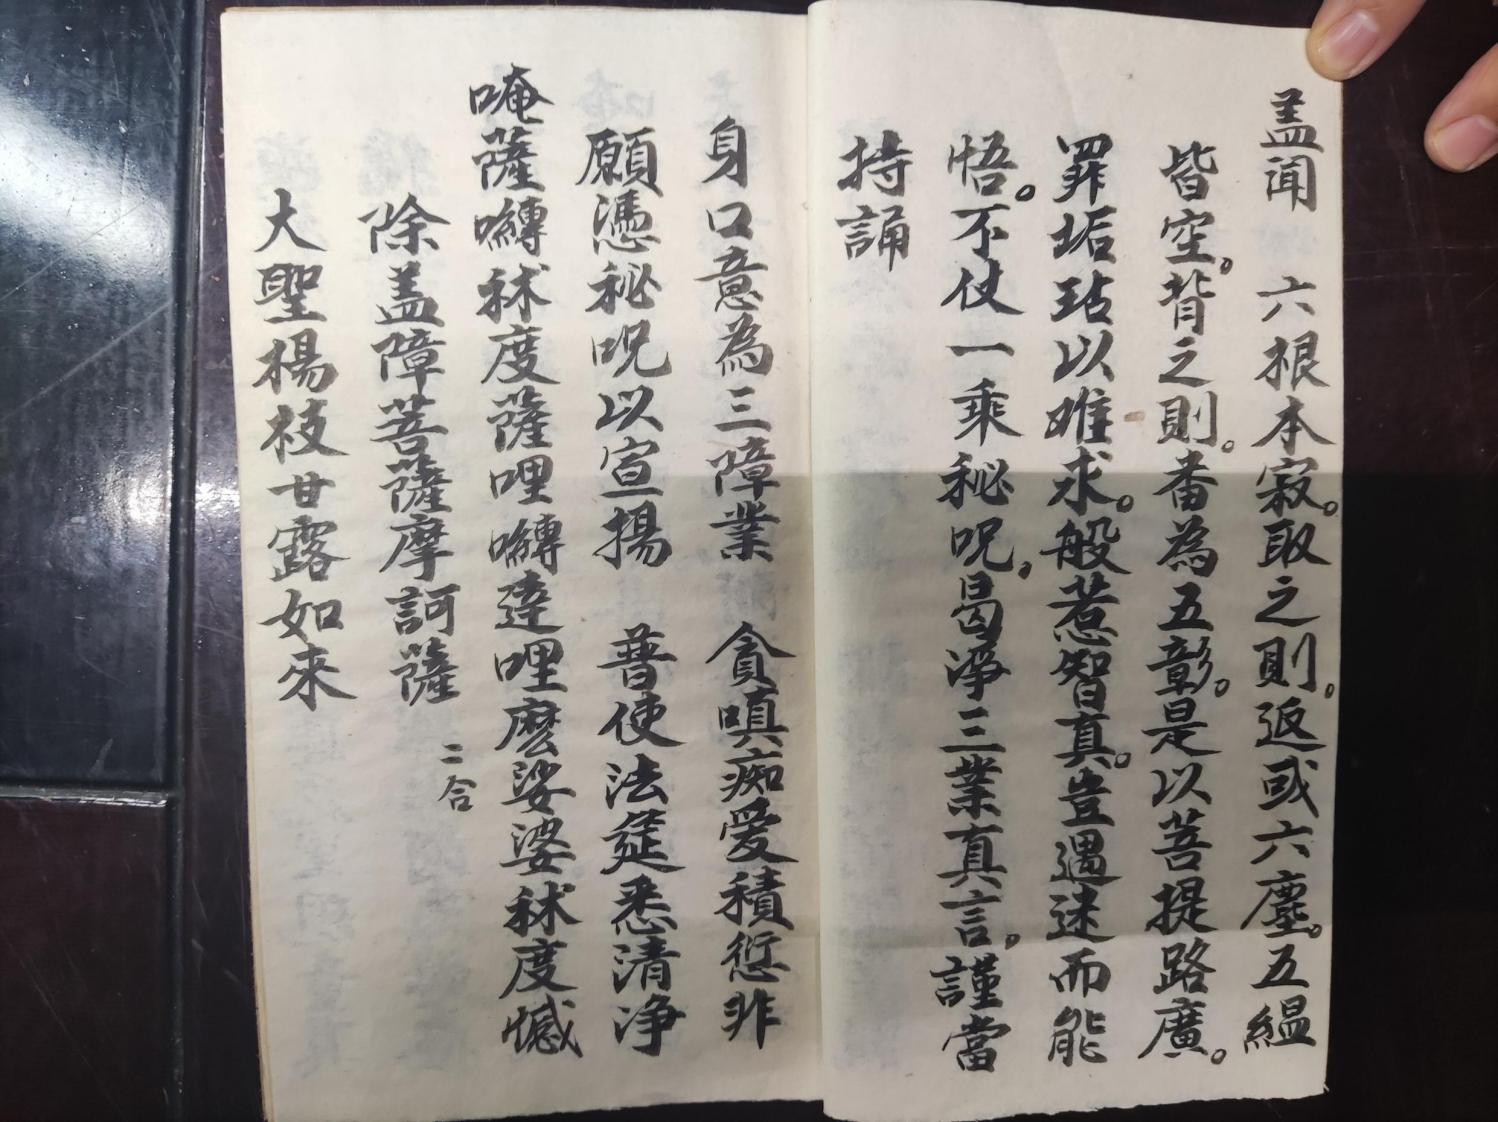 盖闻　六根本寂。取之則。返或六塵。五緼
皆空。背之則。番為五彰。是以菩提路廣。
罪垢玷以难求。般惹智真。豈遇迷而能
悟。不仗一乘秘呪。曷净三業真言。謹當
持誦
身口意為三障業　貪嗔痴爱積愆非
願憑秘呪以宣揚　普使法筵悉清净
唵薩嚩秫度薩哩嚩達哩麽娑婆秫度憾
除盖障菩薩摩訶薩　二合
大聖楊枝甘露如來